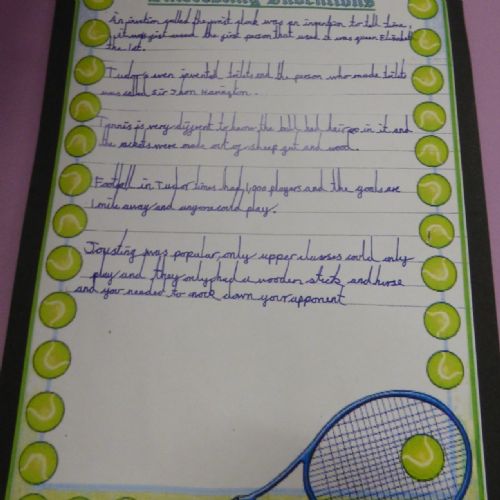 Interesting Inventions
An invention called the wrist clock was an invention to tell time,
it was first used the first person that used it was queen Elizabeth
the 1st.
Tudors even invented toilets and the person who made toilets
was called Sir Jhon Harington.
Tennis is very different to know the balls had hair in it and
the rackets were made out of sheep gut and wood.
Football in Tudor times had 1,000 players and the goals are
1 mile away and anyone could play.
Jousting was popular, only upper classes could only
play and they only had a wooden stick and horse
and you needed to nock down your opponent